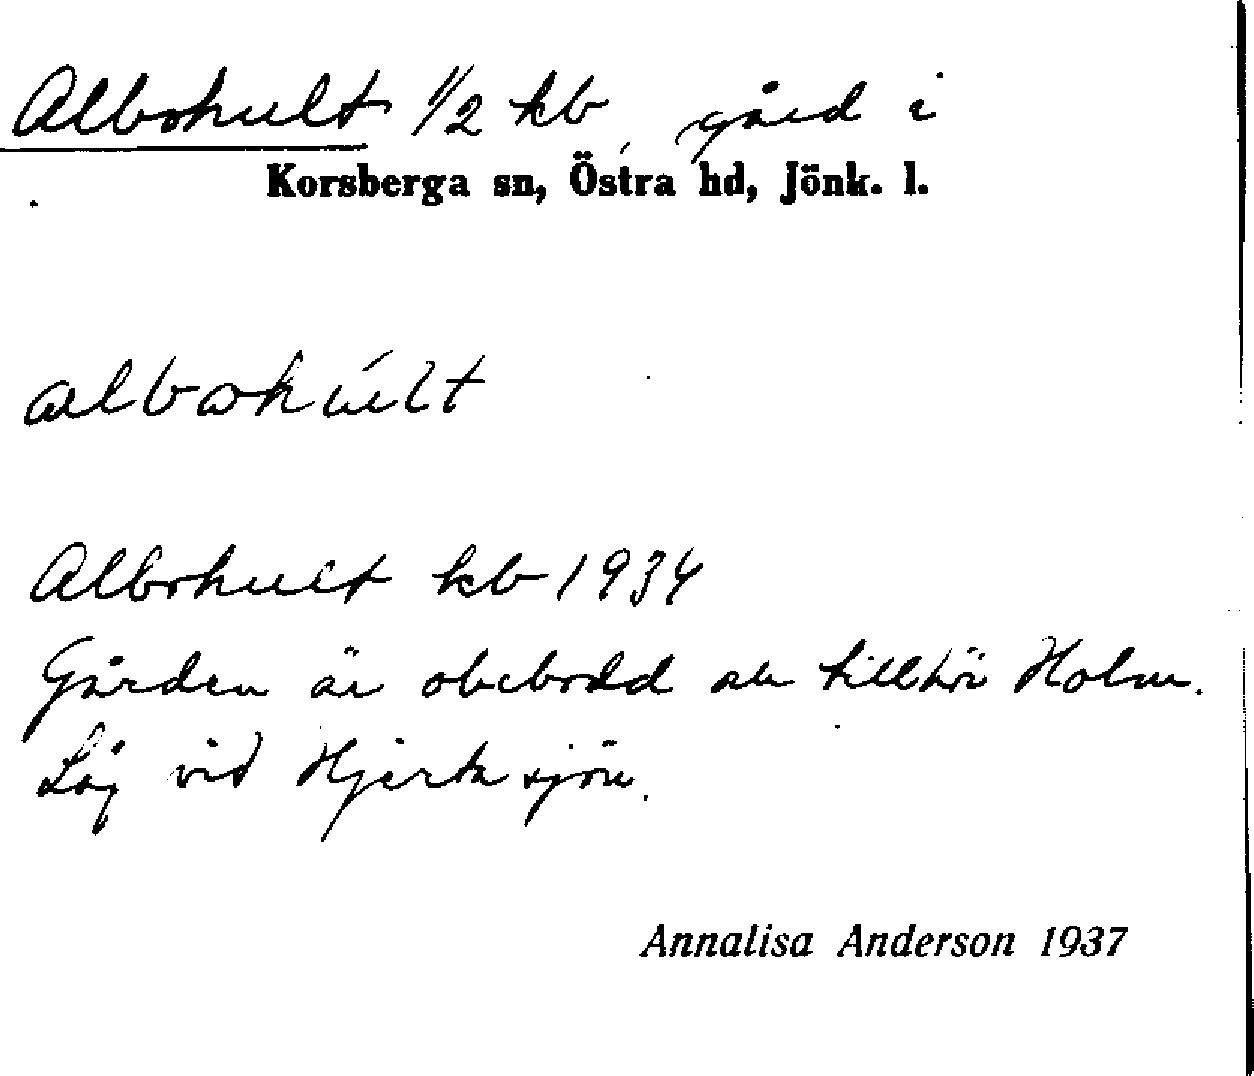 Albohult 1/2 kb gård i
Korsberga sn, Östra hd, Jönk. l.
Albohult kb 1934
Gården är obebodd och tillhör Holm.
Låg vid Hjärtasjön.
Annalisa Anderson 1937